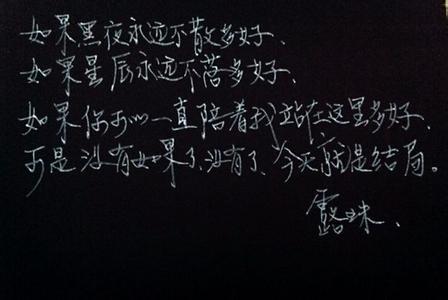 如果黑夜永远不散多好、
如果星辰永远不落多好、
如果你可以一直陪着我站在这里多好、
可是没有如果了、没有了、今天就是结局。
露珠、